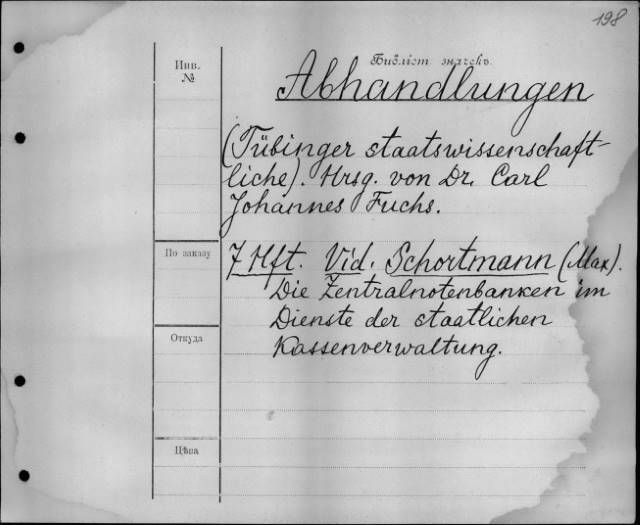 198
Инв.
№
Библіот. значекъ
Abhandlungen
(Tübinger staatswissenschaft-
liche). Hrsg. von Dr. Carl
Johannes Fuchs.
По заказу
7 Hft. Vid. Schortmann (Max).
Die Zentralnotenbanken im
Dienste der staatlichen
Откуда
Kassenverwaltung.
Цѣна